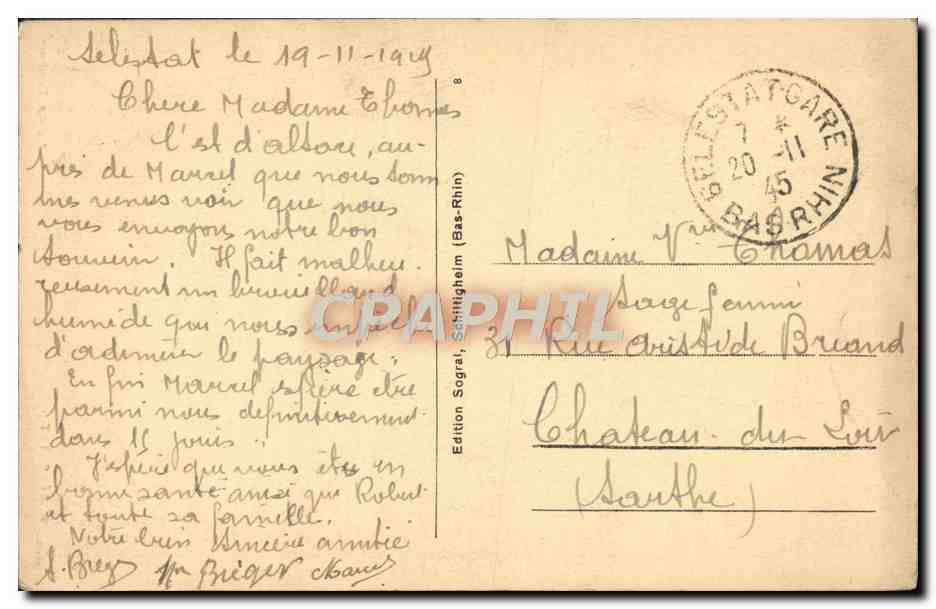 Selestat le 19-11-1945
Chere Madame Thomas
C'est d'alsace, au-
près de Marcel que nous som
mes venus voir que nous
vous envoyons notre bon
souvenir. Il fait malheu-
reusement un brouillard
humide qui nous empêche
d'admirer le paysage.
En fin Marcel espère être
parmi nous definitivement
dans 15 jours.
J'espère que vous êtes en
bonne santé ainsi que Robert
et toute sa famille.
Notre bien sincère amitié
Breger
8
Edition Sogral, Schiltigheim (Bas-Rhin)
SELESTAT-GARE
7 *
20 -11
45
BAS RHIN
Madame Vve Thomas
Sage femme
31 Rue Aristide Briand
Chateau-du Loir
(Sarthe)
CPAPHIL